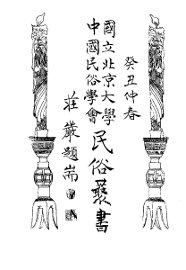 癸丑仲春
國立北京大學
中國民俗學會
民俗叢書
莊嚴題耑